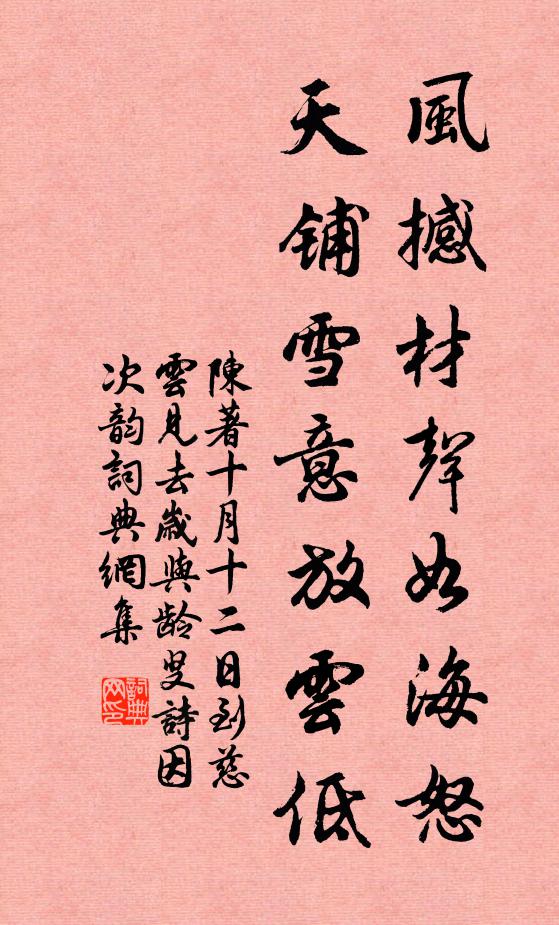 風撼材聲如海怒
天铺雪意放雲低
陳著十月十二日到慈
雲見去歲與龄叟詩因
次韵詞典網集
詞典网印